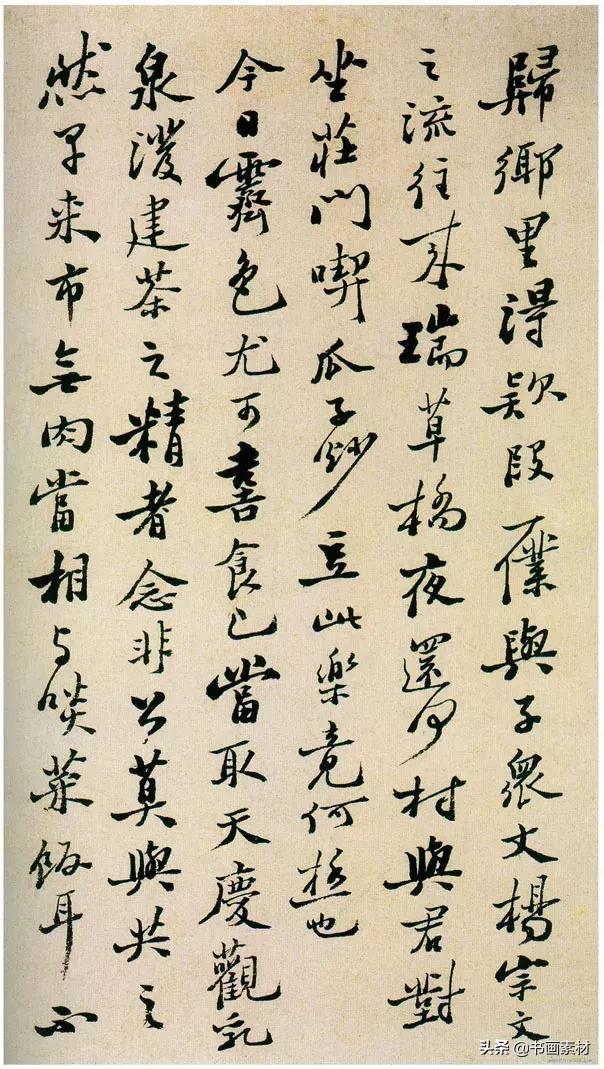 歸鄉里得欵段一僕與子眾丈楊宗文
之流往來瑞草橋夜還何村與君對
坐莊門喫瓜子炒豆此樂竟何極也
今日霽色尤可喜食已當取天慶觀乳
泉潑建茶之精者念非公莫與共之
然早来市無肉當相与啖菜飯耳不
头条 @书画素材